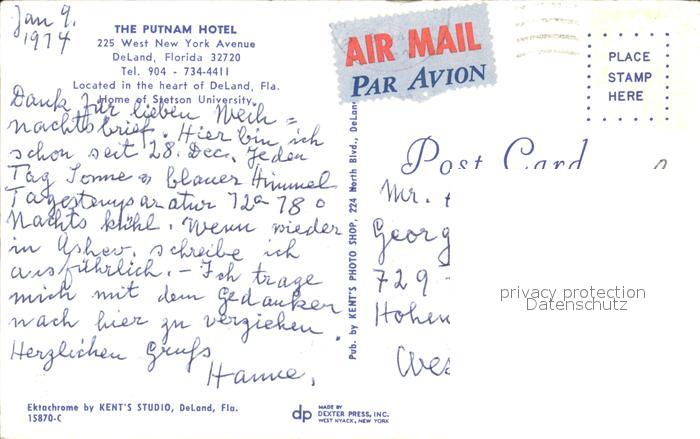 Jan 9.
1974
THE PUTNAM HOTEL
225 West New York Avenue
DeLand, Florida 32720
Tel. 904 - 734-4411
Located in the heart of DeLand, Fla.
Home of Stetson University.
Dank für lieben Weih=
nachtsbrief. Hier bin ich
schon seit 28. Dec. Jeden
Tag Sonne & blauer Himmel
Tagestemperatur 72 a 78 o
Nachts kühl. Wenn wieder
in Ashev. schreibe ich
ausführlich. - Ich trage
mich mit dem Gedanken
nach hier zu verziehen.
Herzlichen Gruß
Hanne.
Ektachrome by KENT'S STUDIO, DeLand, Fla.
15870-C
AIR MAIL
PAR AVION
Pub. by KENT'S PHOTO SHOP, 224 North Blvd., DeLan
dp MADE BY
DEXTER PRESS, INC.
WEST NYACK, NEW YORK
PLACE
STAMP
HERE
Post Card
Mr.
Georg
729-
Hohen
Wes
privacy protection
Datenschutz